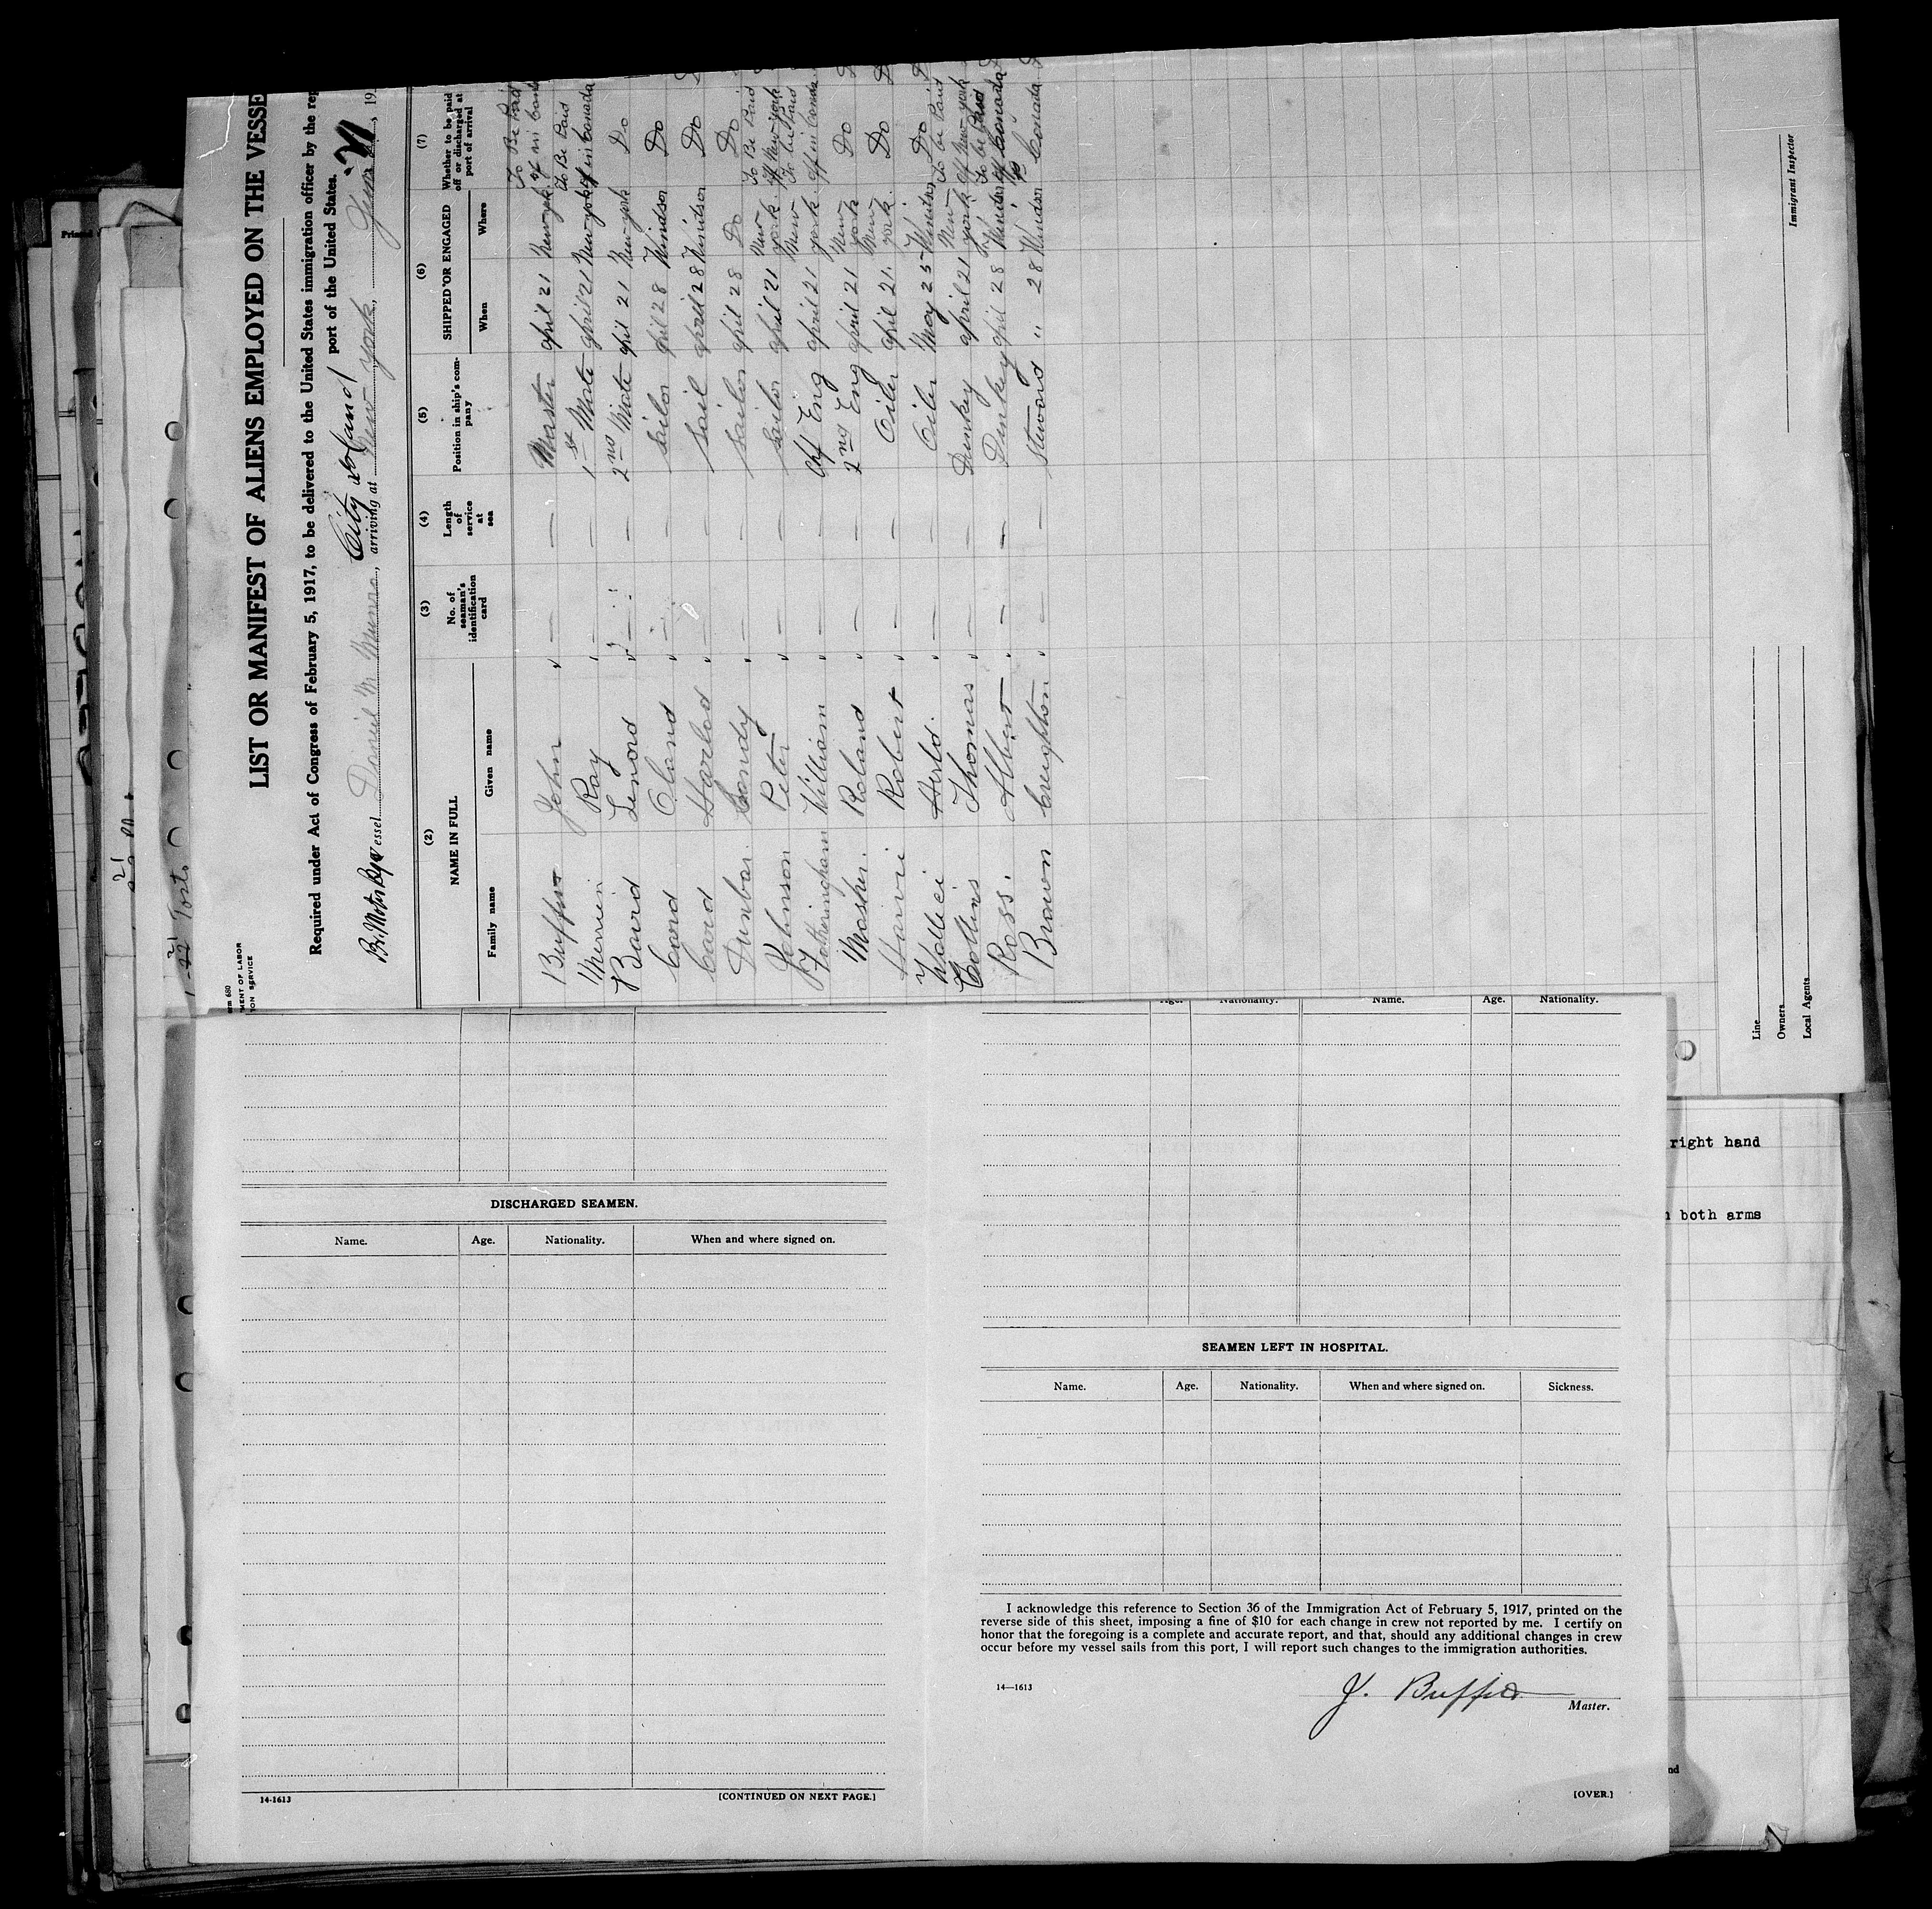 LIST OR MANIFEST OF ALIENS EMPLOYED ON THE VESSE
Required under Act of Congress of February 5, 1917, to be delivered to the United States immigration officer by the rep
port of the United States.
Vessel Daniel M Munro, arriving at New York, 19
(2) (3) (4) (5) (6) (7)
NAME IN FULL
No. of seaman's identification card
Length of service at sea
Position in ship's company
SHIPPED OR ENGAGED
Whether to be paid off or discharged at port of arrival
Family name Given name When Where
John — — Master April 21 New York To Be Paid
of in
Ray — — 1st Mate April 21 New York To Be Paid
of in Canada
Baird Lenord — — 2nd Mate April 21 New York Do
Card Oland — — Sailor April 28 Windsor Do
Card Harlod — Sail April 28 Windsor Do
Dunbar. — Sailor April 28 Do Do
Johnson Peter — — Sailor April 21 New York To Be Paid
of New York
Fotheringham William — — Chf Eng April 21 New York
off in Canda
Mosher. Roland — — 2nd Eng April 21 New York Do
Harvie Robert — — Oiler April 21. New York. Do
— Oiler May 25 Windsor Do
Collins Thomas — — Dunkey April 21 New York To be Paid
of New York
Ross. Albert — — Dunkey April 28 Windsor To be Paid
of Canada
Brown Creighton. — — Steward " 28 Windsor Do Canada
Immigrant Inspector
Line
Owners
Local Agents
DISCHARGED SEAMEN.
Name. Age. Nationality. When and where signed on.
14-1613
[CONTINUED ON NEXT PAGE.]
Age. Nationality. Name. Age. Nationality.
SEAMEN LEFT IN HOSPITAL.
Name. Age. Nationality. When and where signed on. Sickness.
I acknowledge this reference to Section 36 of the Immigration Act of February 5, 1917, printed on the
reverse side of this sheet, imposing a fine of $10 for each change in crew not reported by me. I certify on
honor that the foregoing is a complete and accurate report, and that, should any additional changes in crew
occur before my vessel sails from this port, I will report such changes to the immigration authorities.
14—1613
J. Buffett
Master.
[OVER.]
right hand
both arms
nd